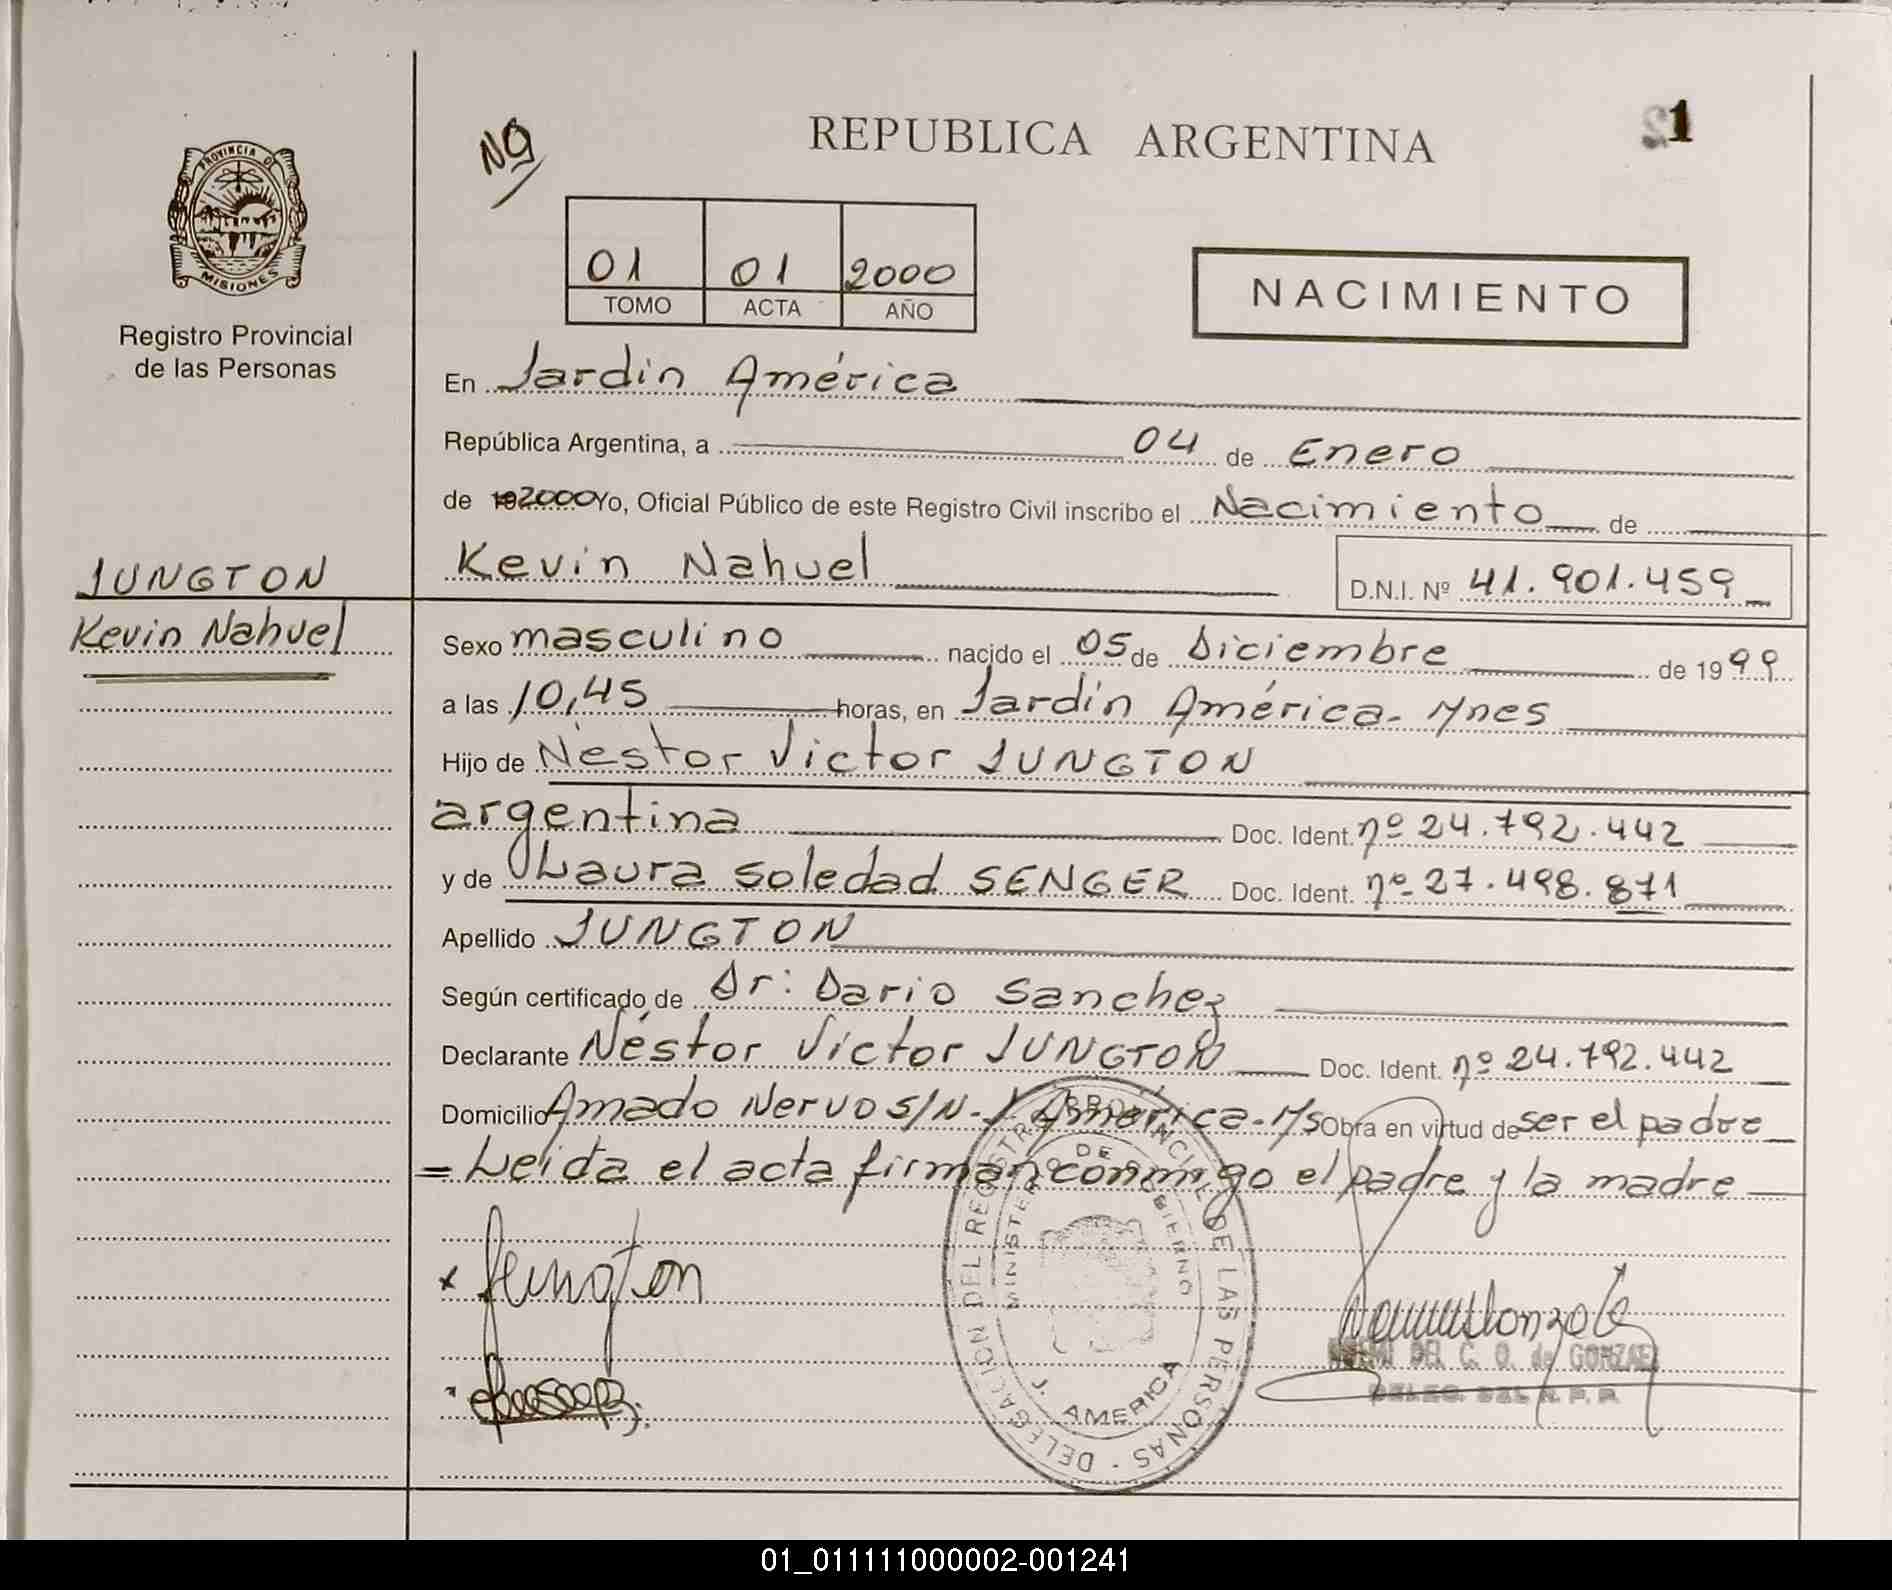 REPUBLICA ARGENTINA
1
PROVINCIA DE
MISIONES
Registro Provincial
de las Personas
01 01 2000
TOMO ACTA AÑO
NACIMIENTO
En Jardín América
República Argentina, a 04 de Enero
de 2000 Yo, Oficial Público de este Registro Civil inscribo el Nacimiento de
JUNGTON
Kevin Nahuel
Kevin Nahuel D.N.I. Nº 41.901.459
Sexo masculino nacido el 05 de Diciembre de 1999
a las 10,45 horas, en Jardín América - Mnes
Hijo de Néstor Victor JUNGTON
argentina Doc. Ident. nº 24.792.442
y de Laura Soledad SENGER Doc. Ident. nº 27.498.871
Apellido JUNGTON
Según certificado de Dr: Dario Sanchez
Declarante Néstor Victor JUNGTON Doc. Ident. nº 24.792.442
Domicilio Amado Nervo S/N. J. América - M/s Obra en virtud de ser el padre
= Leída el acta firman conmigo el padre y la madre
x Jungton
DELEGACION DEL REGISTRO PROVINCIAL DE LAS PERSONAS
MINISTERIO DE GOBIERNO
J. AMERICA
DEL C. O. de GONZALEZ
DELEG. DEL R. P. P.
01_011111000002-001241